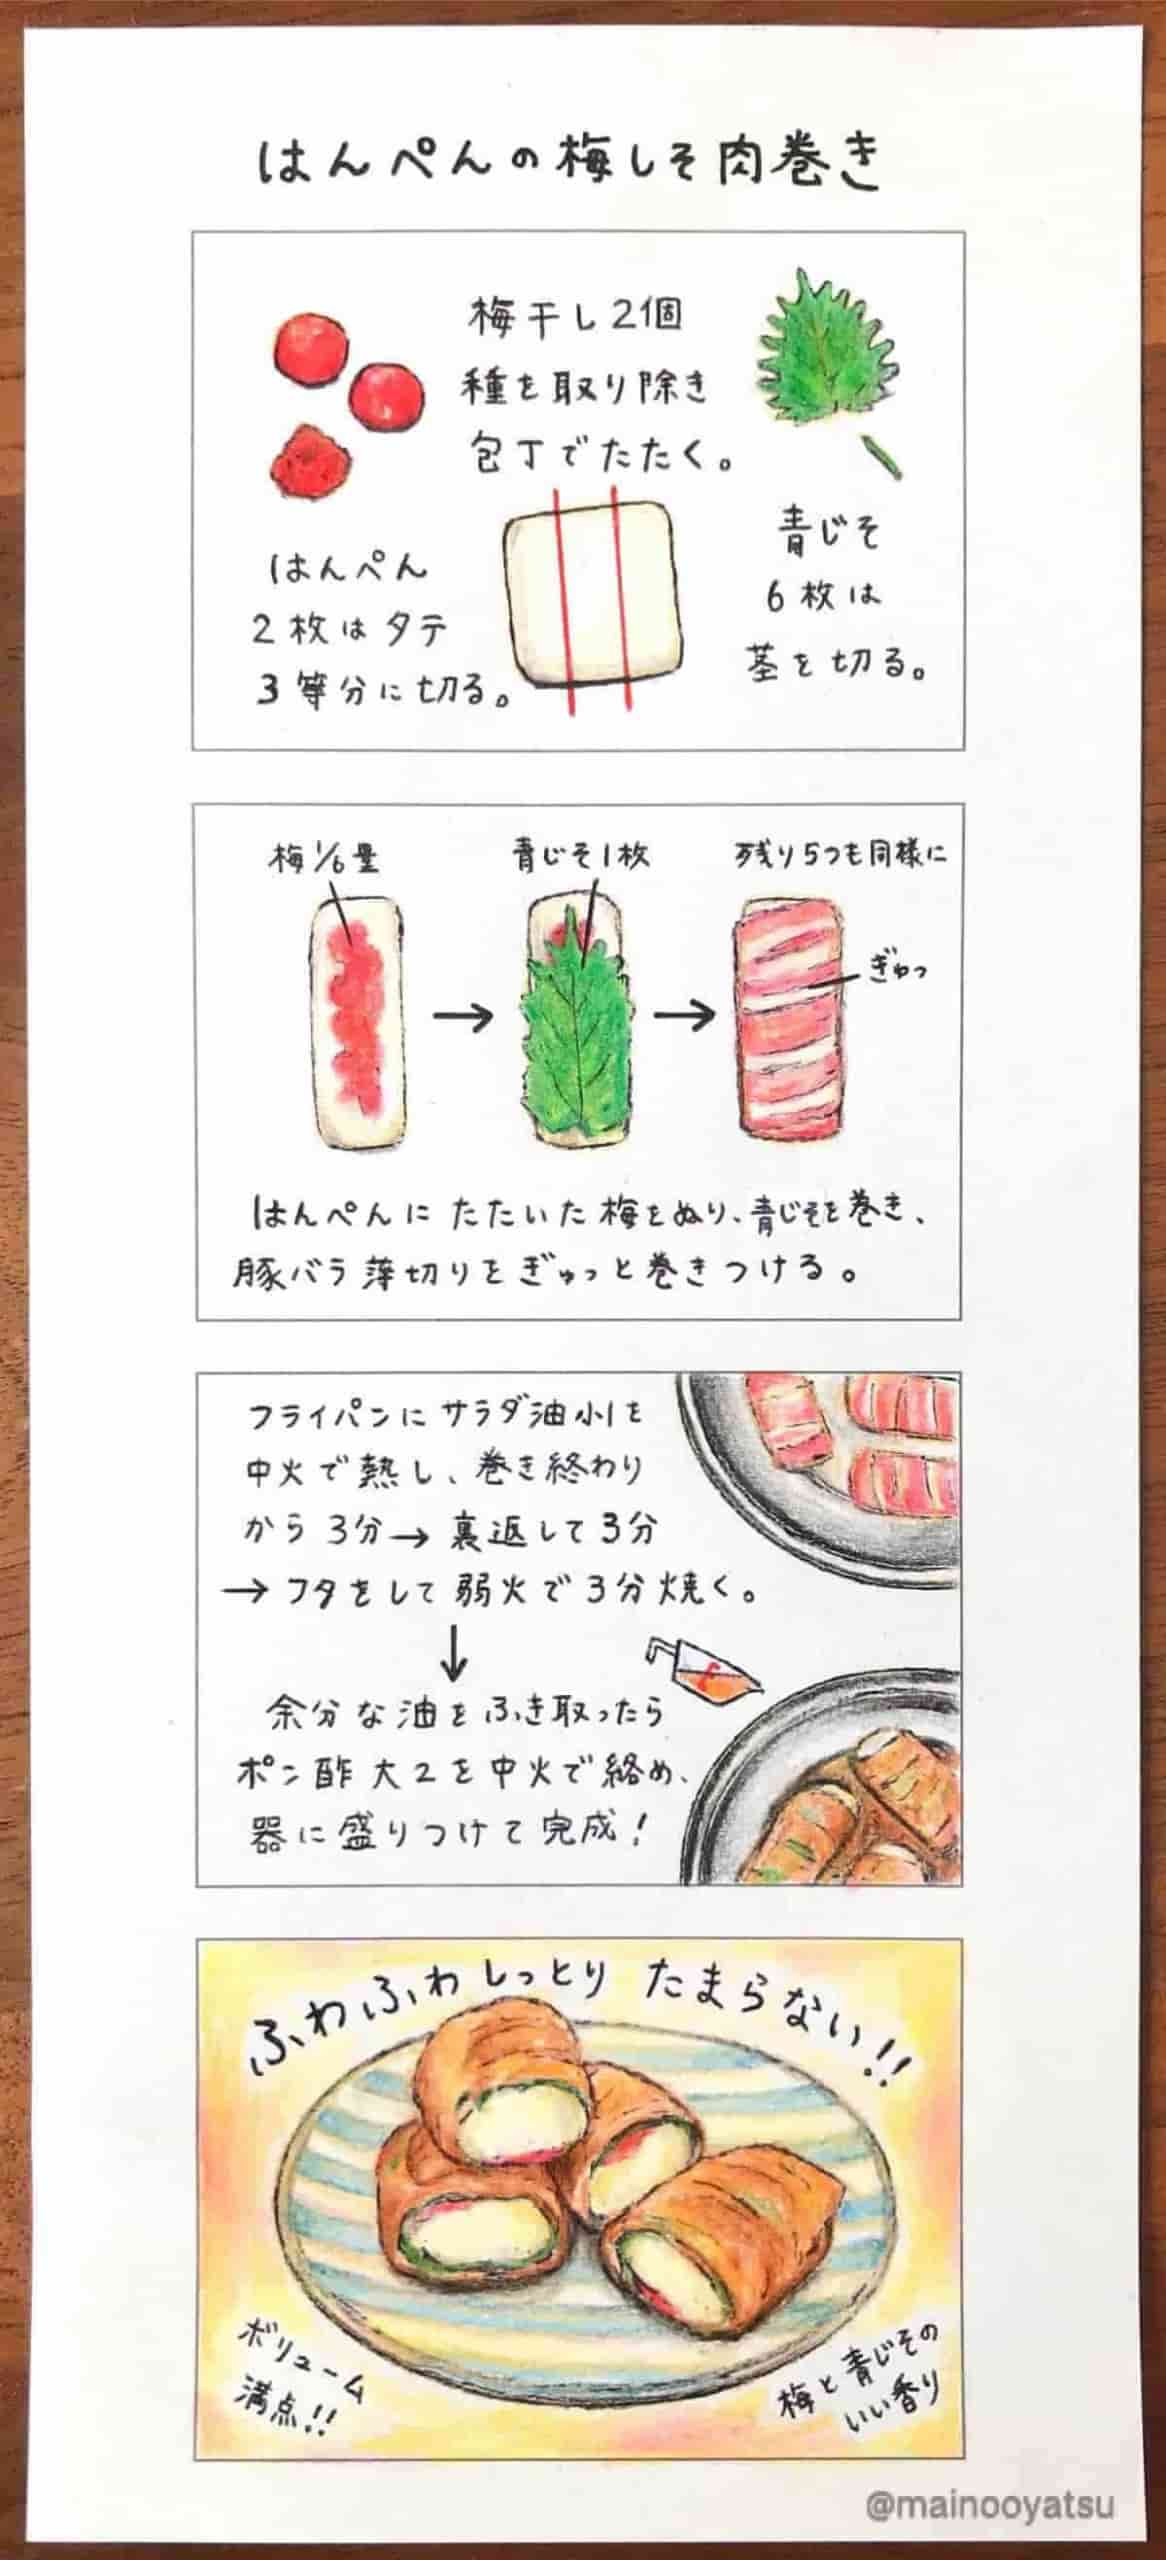 はんぺんの梅しそ肉巻き
梅干し2個
種を取り除き
包丁でたたく。
はんぺん
2枚はタテ
3等分に切る。
青じそ
6枚は
茎を切る。
梅1/6量
青じそ1枚
残り5つも同様に
ぎゅっ
はんぺんにたたいた梅をぬり、青じそを巻き、
豚バラ薄切りをぎゅっと巻きつける。
フライパンにサラダ油小1を
中火で熱し、巻き終わり
から3分→裏返して3分
→フタをして弱火で3分焼く。
↓
余分な油をふき取ったら
ポン酢大2を中火で絡め、
器に盛りつけて完成!
ふわふわしっとりたまらない!!
ボリューム
満点!!
梅と青じその
いい香り
@mainooyatsu